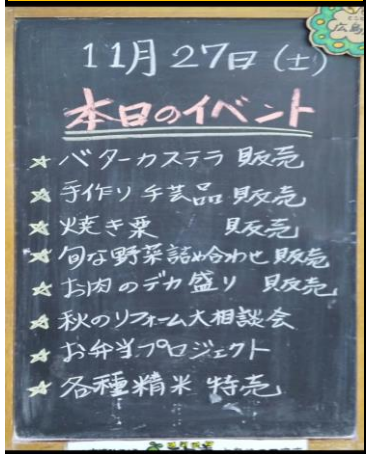 11月27日(土)
本日のイベント
☆バターカステラ 販売
☆手作り手芸品 販売
☆焼き栗 販売
☆旬な野菜詰め合わせ 販売
☆お肉のデカ盛り 販売
☆秋のリフォーム大相談会
☆お弁当プロジェクト
☆各種精米 特売